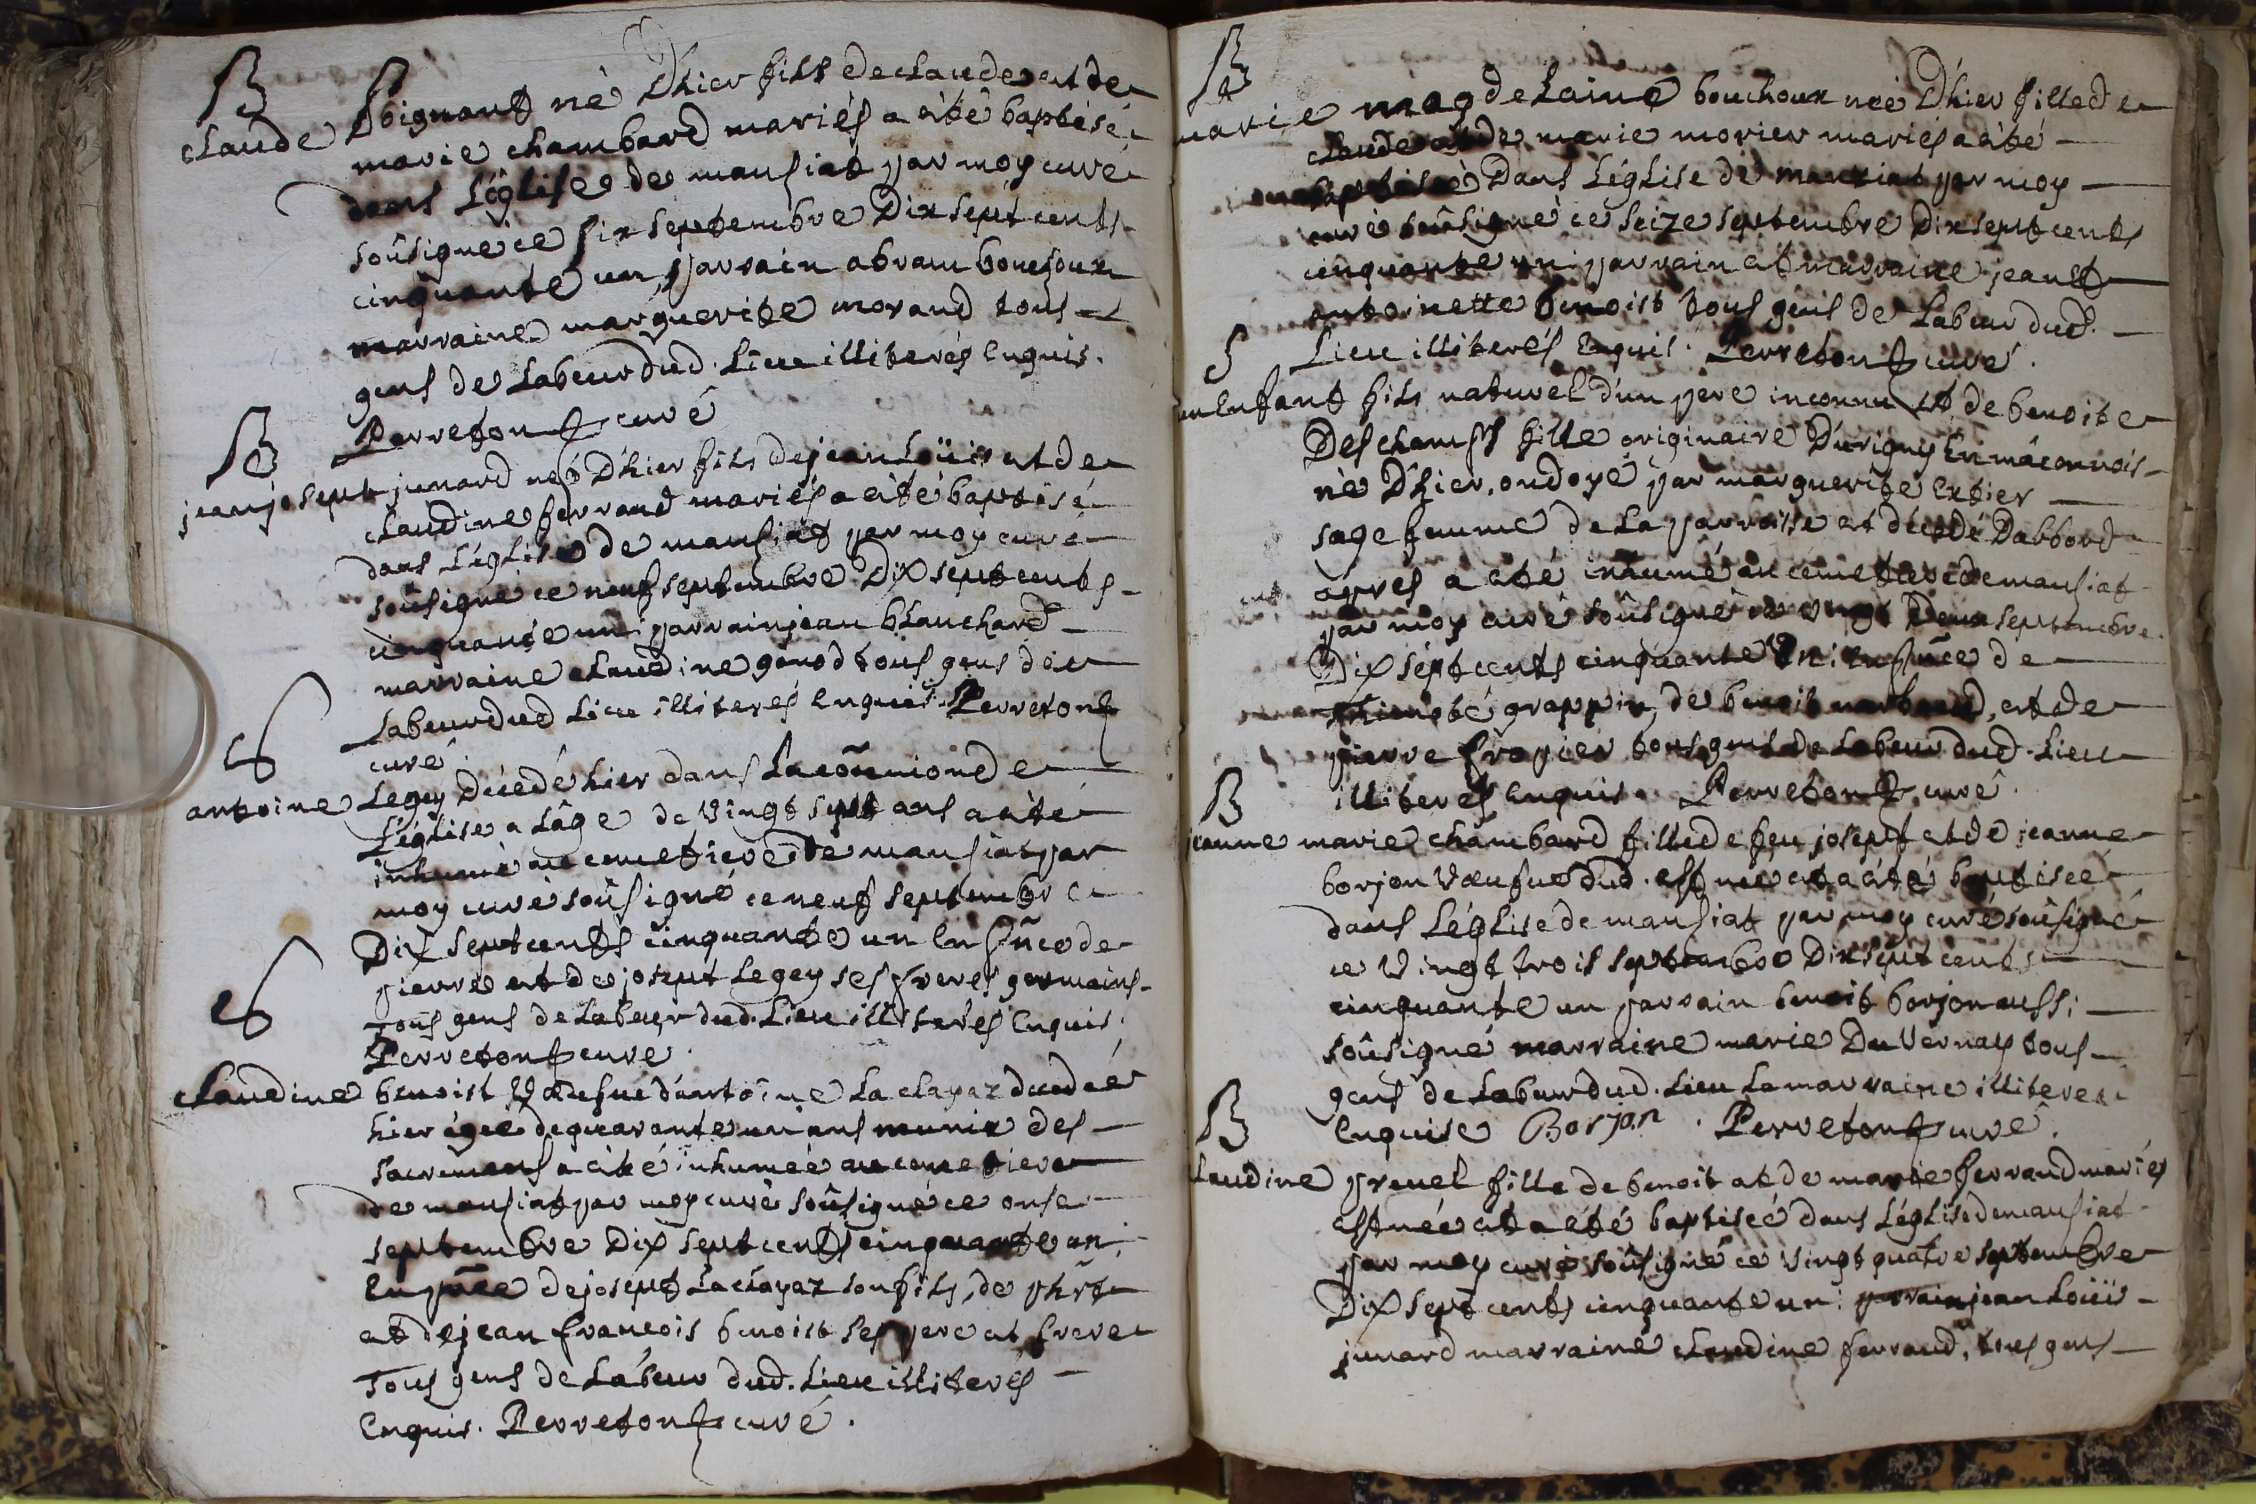 B
claude Poignant né D'hier fils de claude et de
marie chambard mariés a été baptisé
dans L'église de mansiat par moy curé
soûsigné ce six septembre Dix sept cents
cinquante un, parrain abram bouchoux
marraine marguerite morand tous
gens de Labeur dud. Lieu illiterés Enquis.
Perreton curé
B
jean josept junard né D'hier fils de jean Loüis et de
claudine ferrand mariés a été baptisé
dans L'église de mansiat par moy curé
soûsigné ce neuf septembre Dix sept cents
cinquante un; parrain jean blanchard
marraine claudine gonod tous gens de
Labeur dud Lieu illiterés Enquis. Perreton
curé.
S
antoine Legey Décedé hier dans La com̃union de
L'église a L'âge de vingt sept ans a été
inhumé au cemetiere de mansiat par
moy curé soûsigné ce neuf septembre
Dix sept cents cinquante un En pñce de
pierre et de josept Legey ses freres germains
Tous gens de Labeur dud. Lieu illiterés Enquis.
Perreton curé.
S
claudine benoist Vaefue d'antoine La clayaz decedée
hier âgée de quarante un ans munie des
sacremens a été inhumée au cemetiere
de mansiat par moy curé soûsigné ce onse
septembre Dix sept cents cinquante un;
En pñce de josept La clayaz son fils, de phrt
et de jean francois benoist ses pere et frere
Tous gens de Labeur dud. Lieu illiterés
Enquis. Perreton curé.
B
marie magdelaine bouchoux neé D'hier fille de
claude et de marie morier mariés a été
baptisée Dans L'église de mansiat par moy
curé soûsigné ce seize septembre Dix sept cents
cinquante un; parrain et marraine jean et
antoinette benoist tous gens de Labeur dud.
Lieu illiterés Enquis. Perreton curé.
S
un Enfant fils naturel d'un pere inconnu et de benoite
Deschamps fille originaire D'urigny En mâconnois
né D'hier, ondoyé par marguerite Extier
sage femme de La parroisse et décedé D'abbord
apres a été inhumé au cemetiere de mansiat
par moy curé soûsigné ce vingt Deux septembre
Dix sept cents cinquante Un; En pñce de
grappin, de benoit, et de
pierre frapier tous gens de Labeur dud. Lieu
illiterés Enquis. Perreton curé.
B
jeanne marie chambard fille de feu josept et de jeanne
borjon Vaeufue dud. est neé et a été baptisée
dans L'église de mansiat par moy curé soûsigné
ce Vingt trois septembre Dix sept cents
cinquante un parrain benoit borjon aussi
soûsigné marraine marie DuVernay tous
gens de Labeur dud. Lieu La marraine illiterée
Enquise Borjon. Perreton curé.
B
claudine pruel fille de benoit et de marie ferrand mariés
est née et a été baptiseé dans L'église de mansiat
par moy curé soûsigné ce vingt quatre septembre
Dix sept cents cinquante un: parrain jean Loüis
junard marraine claudine ferrand, tous gens